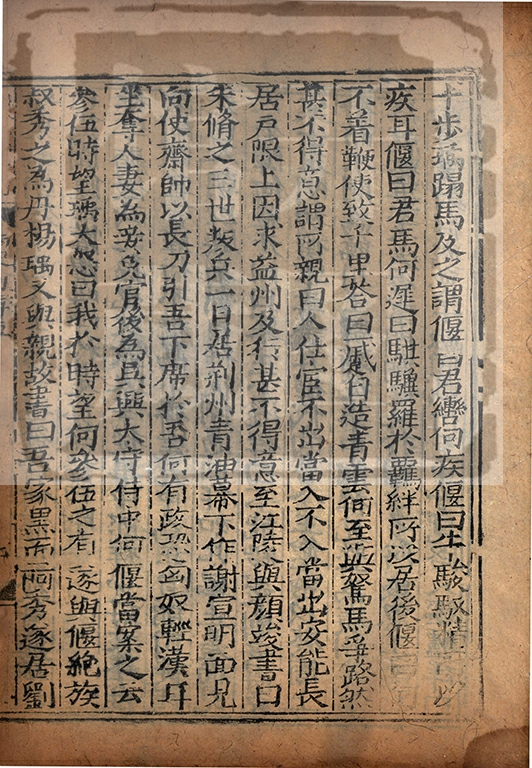 十步瑀蹋馬及之謂偃曰君轡何疾偃曰牛駿馭精
疾耳偃曰君馬何遲曰騏驥羅於羈絆所以居後偃曰
不着鞭使致千里荅曰一蹙自造青雲何至與駑馬爭路然
甚不得意謂所親曰人仕宦不出當入不入當出安能長
居戶限上因求益州及行甚不得意至江陵與顏竣書曰
朱脩之三世叛兵一旦居荆州青油幕下作謝宣明面見
向使齋帥以長刀引吾下席於吾何有政恐匈奴輕漢耳
坐奪人妻爲妾免官後爲吳興太守侍中何偃當案之云
參伍時望瑀大怒曰我於時望何參伍之有遂與偃絶族
叔秀之爲丹楊瑀又與親故書曰吾家黑面向秀遂居劉